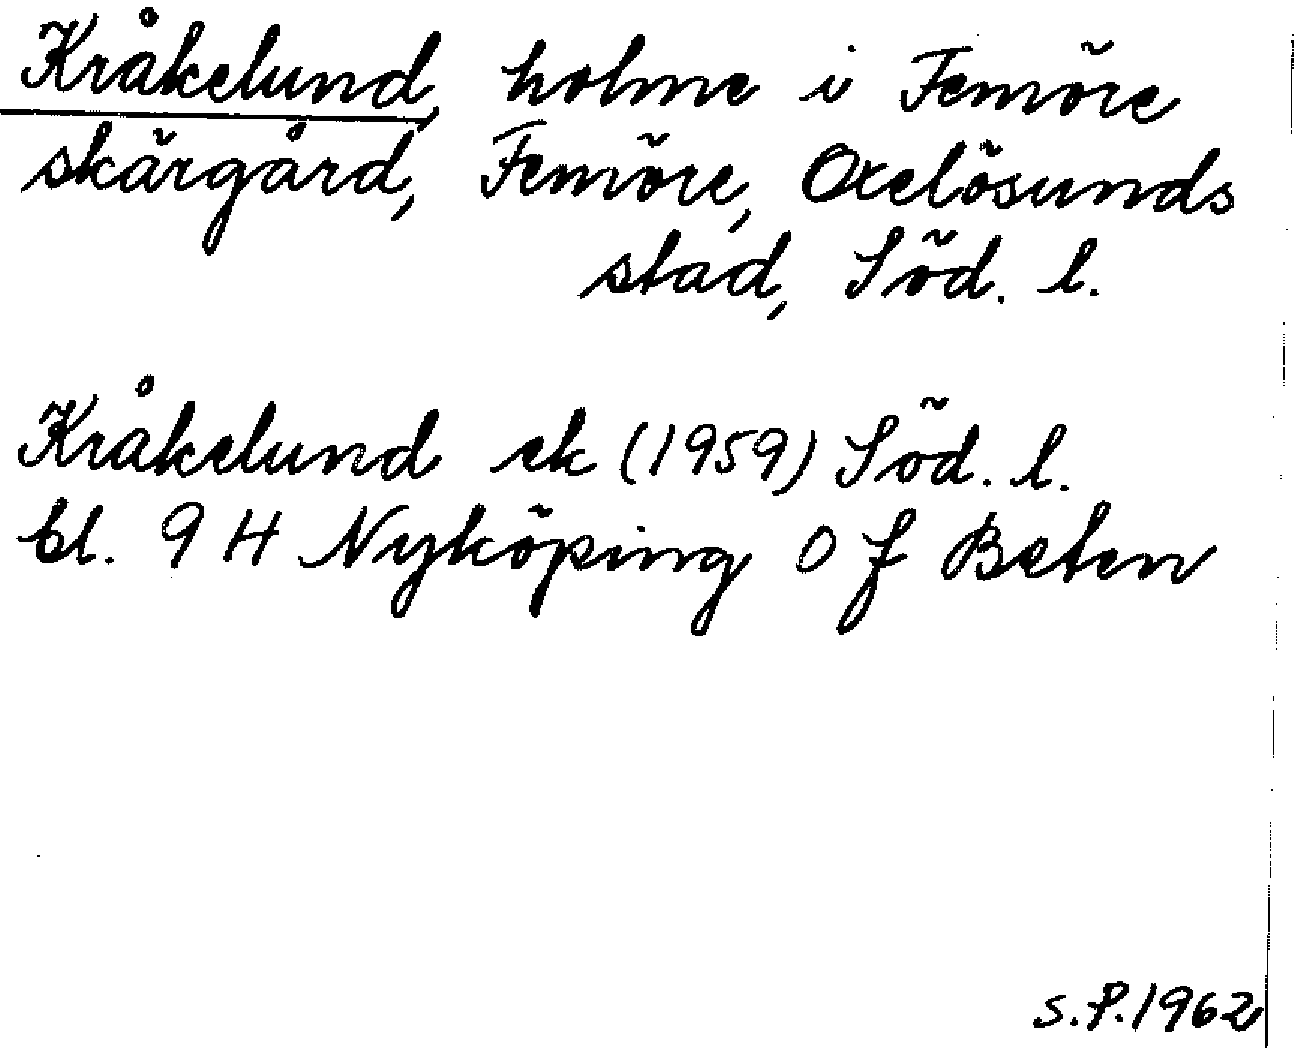 Kråkelund, holme i Femöre
skärgård, Femöre, Oxelösunds
stad, Söd. l.
Kråkelund ek (1959) Söd. l.
bl. 9 H Nyköping 0 f Beten
S.P. 1962